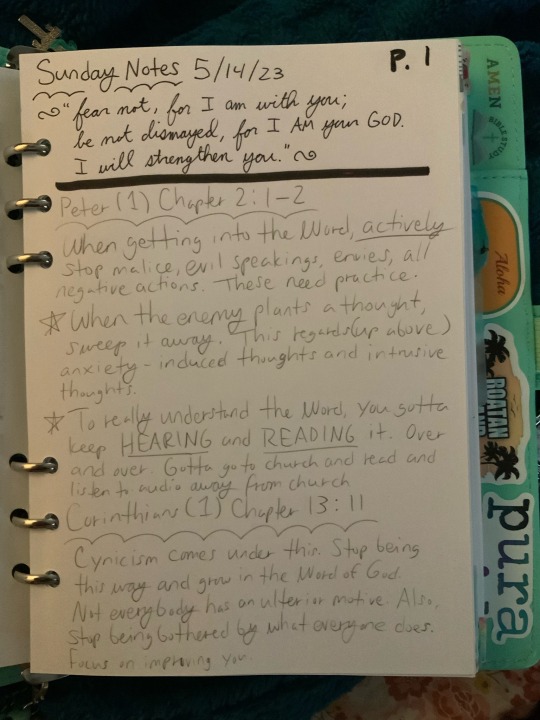 Sunday Notes 5/14/23
P. 1
"fear not, for I am with you;
be not dismayed, for I AM your GOD.
I will strengthen you."
Peter (1) Chapter 2:1-2
When getting into the Word, actively
stop malice, evil speakings, envies, all
negative actions. These need practice.
☆ When the enemy plants a thought,
sweep it away. This regards (up above)
anxiety-induced thoughts and intrusive
thoughts.
☆ To really understand the Word, you gotta
keep HEARING and READING it. Over
and over. Gotta go to church and read and
listen to audio away from church
Corinthians (1) Chapter 13:11
Cynicism comes under this. Stop being
this way and grow in the Word of God.
Not everybody has an ulterior motive. Also,
stop being bothered by what everyone does.
Focus on improving you.
AMEN
BIBLE STUDY
Aloha
ROATAN
pura